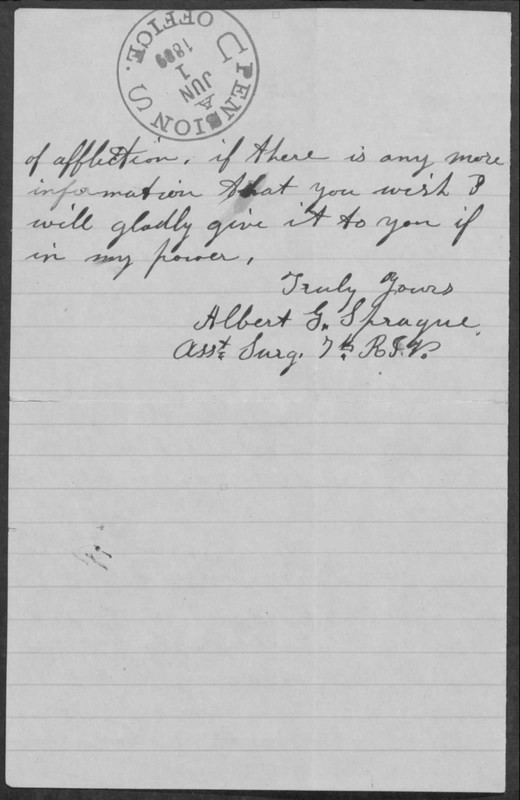 U.S. PENSION OFFICE.
A
JUN
1
1889
of affliction. if there is any more
information that you wish I
will gladly give it to you if
in my power,
Truly Yours
Albert G. Sprague.
Asst. Surg. 7th R.I.V.